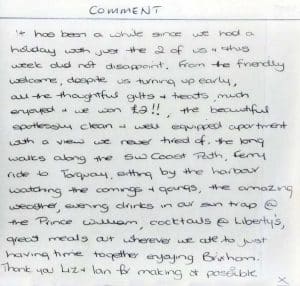 COMMENT
It has been a while since we had a
holiday with just the 2 of us & this
week did not disappoint. From the friendly
welcome, despite us turning up early,
all the thoughtful gifts & treats, much
enjoyed & we won £2!!, the beautiful
spotlessly clean & well equipped apartment
with a view we never tired of, the long
walks along the SW Coast Path, ferry
ride to Torquay, sitting by the harbour
watching the comings & goings, the amazing
weather, evening drinks in our sun trap @
the Prince William, cocktails @ Liberty's,
great meals out wherever we ate to just
having time together enjoying Brixham.
Thank you Liz & Ian for making it possible.
x